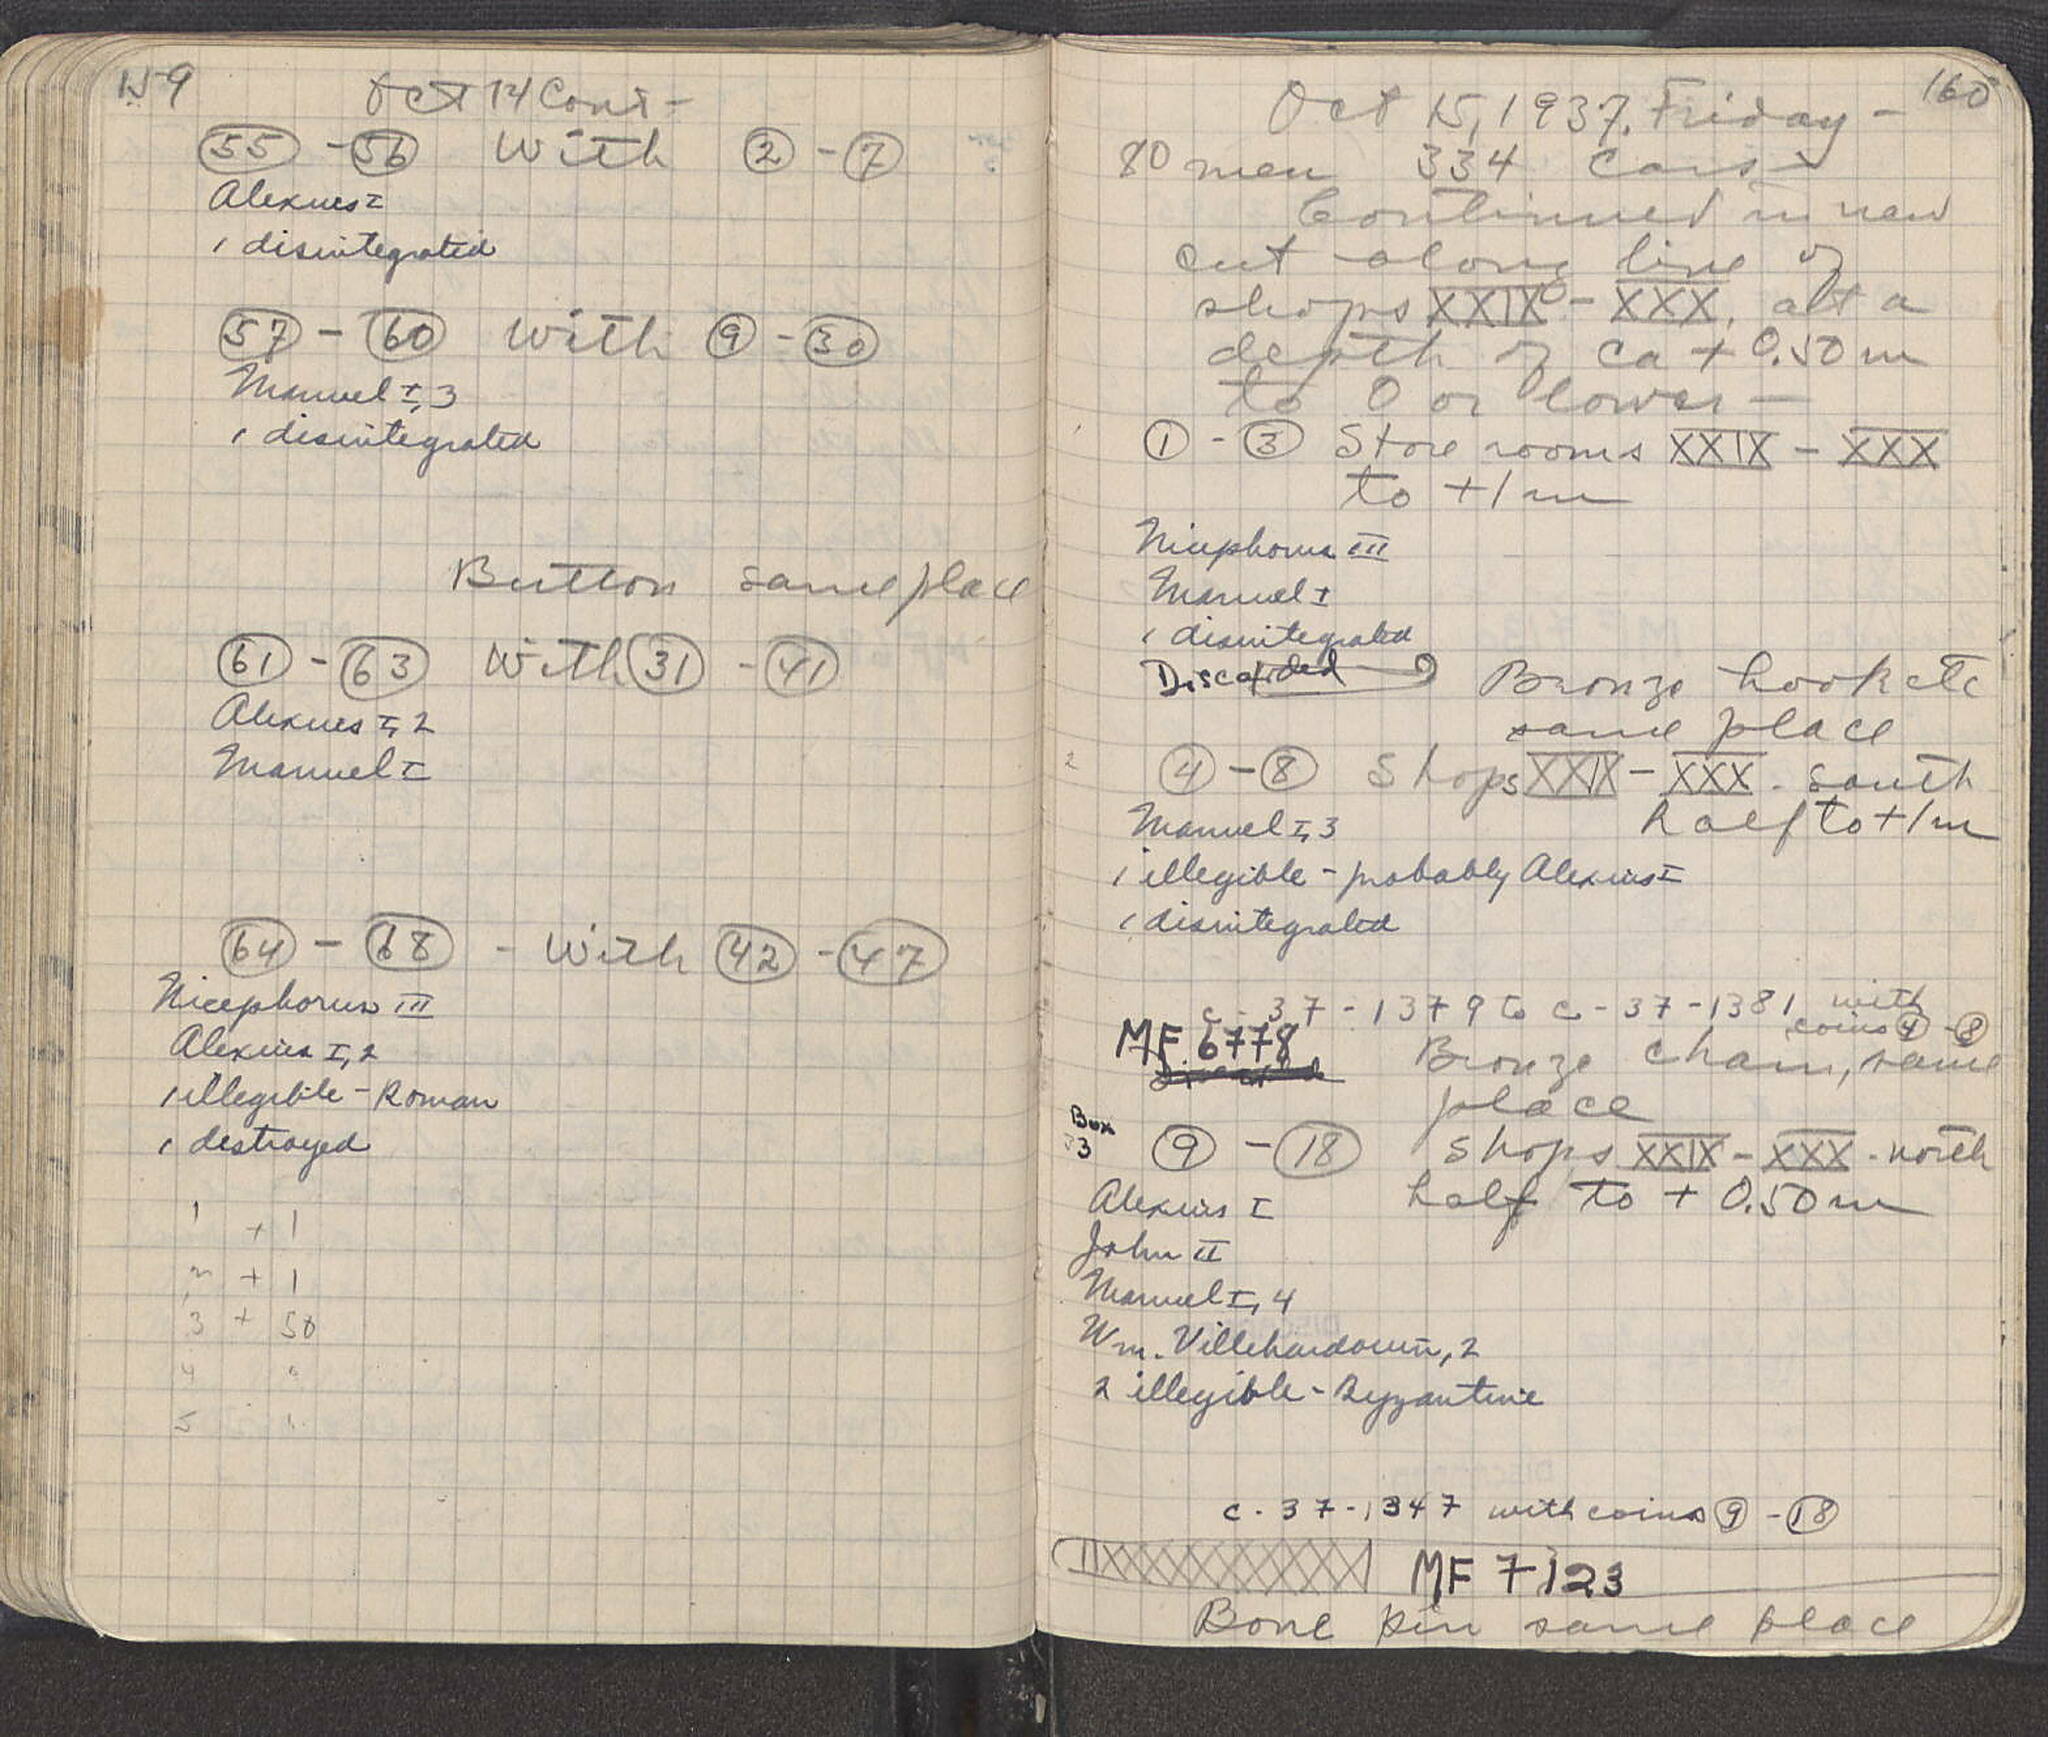 159
Oct 14 Cont -
55 - 56 With 2 - 7
Alexius I
1 disintegrated
57 - 60 With 9 - 30
Manuel I, 3
1 disintegrated
Button same place
61 - 63 With 31 - 41
Alexius I, 2
Manuel I
64 - 68 - With 42 - 47
Nicephorus III
Alexius I, 2
1 illegible - Roman
1 destroyed
1 + 1
2 + 1
3 + 50
4 "
5
160
Oct 15, 1937, Friday -
80 men 334 cars -
Continued in new
cut along line of
shops XXIX - XXX, at a
depth of ca + 0.50 m
to 0 or lower -
1 - 3 Store rooms XXIX - XXX
to +1 m
Nicephorus III
Manuel I
1 disintegrated
Discarded Bronze hook etc
same place
2 4 - 8 Shops XXIX - XXX - south
half to +1 m
Manuel I, 3
1 illegible - probably Alexius I
1 disintegrated
c - 37 - 1379 to c - 37 - 1381 with
coins 4 - 8
MF 6778
Bronze chain, same
place
Box
3 9 - 18 Shops XXIX - XXX - north
half to + 0.50 m
Alexius I
John II
Manuel I, 4
Wm. Villehardouin, 2
2 illegible - Byzantine
c - 37 - 1347 with coins 9 - 18
MF 7123
Bone pin same place